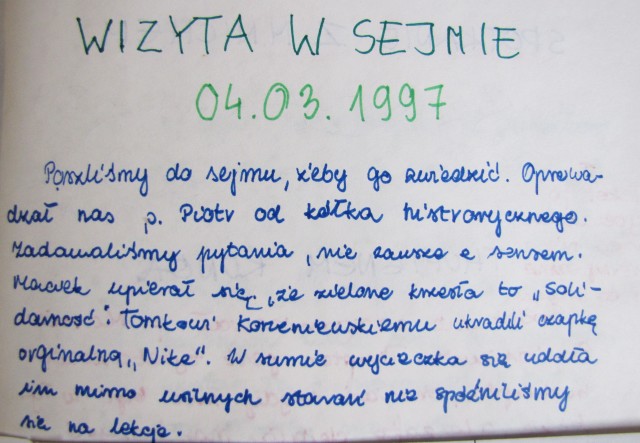 WIZYTA W SEJMIE
04.03.1997
Poszliśmy do sejmu, żeby go zwiedzić. Oprowa-
dzał nas p. Piotr od kółka histroycznego.
Zadawaliśmy pytania, nie zawsze z sensem.
Maciek upierał się, że zielone krzesła to „Soli-
darność". Tomkowi Korzeniewskiemu ukradli czapkę
orginalną „Nike". W sumie wycieczka się udała
i mimo usilnych starań nie spóźniliśmy
się na lekcje.